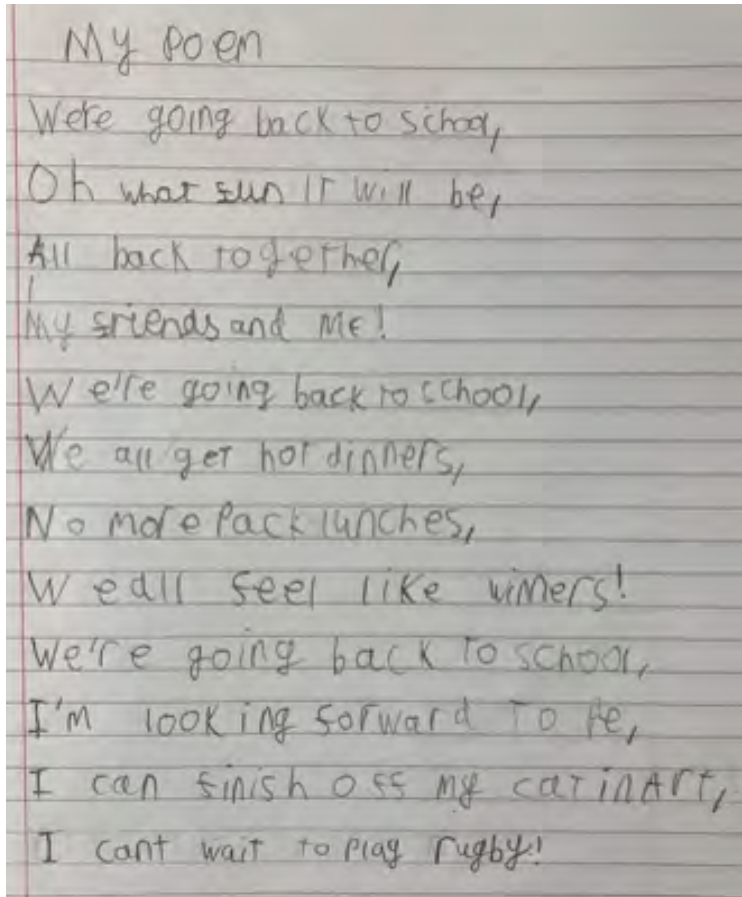 My Poem
We're going back to school,
Oh what fun it will be,
All back together,
My friends and Me!
We're going back to school,
We all get hot dinners,
No more Pack lunches,
We all feel like winners!
We're going back to school,
I'm looking forward to Pe,
I can finish off my cat in Art,
I cant wait to Play rugby!